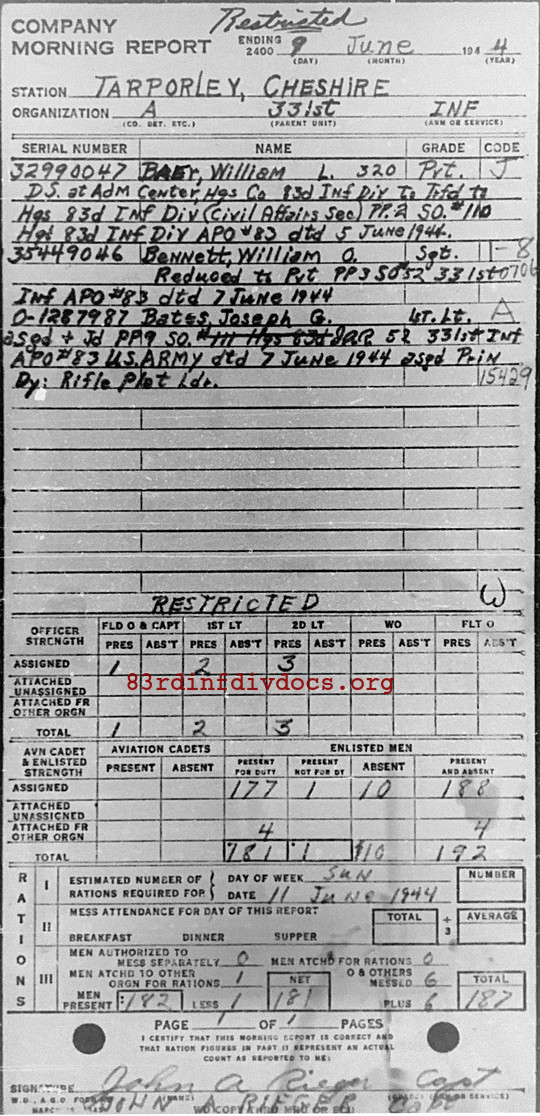 Restricted
COMPANY
MORNING REPORT ENDING 2400 9 June 1944
(DAY) (MONTH) (YEAR)
STATION TARPORLEY, CHESHIRE
ORGANIZATION A 331st INF
(CO. DET. ETC.) (PARENT UNIT) (ARM OR SERVICE)
SERIAL NUMBER NAME GRADE CODE
32990047 BAEr, William L. 320 Pvt. J
D.S. at Adm Center, Hqs Co 83d Inf Div To Trfd to
Hqs 83d INf Div (Civil Affairs Sec) PP.2 SO.#110
Hqs 83d INF Div APO #83 dtd 5 June 1944.
35449046 Bennett, William O. Sgt. -8
Reduced to Pvt PP3 SO 52 331st 0706
Inf APO #83 dtd 7 June 1944
O-1287987 Bates, Joseph G. 1st. Lt. A
asgd + Jd PP9 SO. #111 Hqs 83d 52 331st Inf
APO #83 U.S. ARMY dtd 7 June 1944 asgd Prin
Dy: Rifle Plat Ldr. 15429
RESTRICTED W
OFFICER STRENGTH FLD O & CAPT 1ST LT 2D LT WO FLT O
PRES ABS'T PRES ABS'T PRES ABS'T PRES ABS'T PRES ABS'T
ASSIGNED 1 2 3
83rdinfdivdocs.org
ATTACHED UNASSIGNED
ATTACHED FR OTHER ORGN
TOTAL 1 2 3
AVN CADET & ENLISTED STRENGTH AVIATION CADETS ENLISTED MEN
PRESENT ABSENT PRESENT FOR DUTY PRESENT NOT FOR DY ABSENT PRESENT AND ABSENT
ASSIGNED 177 1 10 188
ATTACHED UNASSIGNED
ATTACHED FR OTHER ORGN 4 4
TOTAL 181 1 10 192
RATIONS
I ESTIMATED NUMBER OF DAY OF WEEK SUN NUMBER
RATIONS REQUIRED FOR DATE 11 June 1944
II MESS ATTENDANCE FOR DAY OF THIS REPORT TOTAL ÷ 3 AVERAGE
BREAKFAST DINNER SUPPER
III MEN AUTHORIZED TO MESS SEPARATELY 0 MEN ATCHD FOR RATIONS 0
MEN ATCHD TO OTHER ORGN FOR RATIONS 1 NET O & OTHERS MESSED 6 TOTAL
MEN PRESENT 182 LESS 1 181 PLUS 6 187
PAGE 1 OF 1 PAGES
I CERTIFY THAT THIS MORNING REPORT IS CORRECT AND
THAT RATION FIGURES IN PART II REPRESENT AN ACTUAL
COUNT AS REPORTED TO ME:
SIGNATURE John A Rieger Capt
(NAME) (GRADE) (ARM OR SERVICE)
W.D., A.G.O. FORM
JOHN A RIEGER Capt